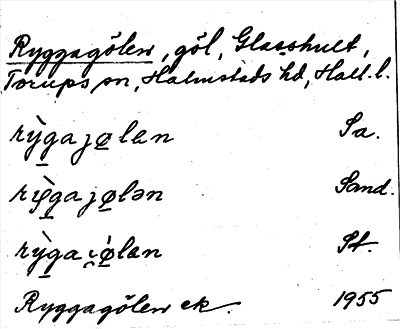 Ryggagölen, göl, Glasshult,
Torups sn, Halmstads hd, Hall. l.
rỳ̠gajø̠lan Sa.
rỳ̠gajø̠lən Sand.
rỳ̠gai̯ǿ̠læn St.
Ryggagölen ek. 1955